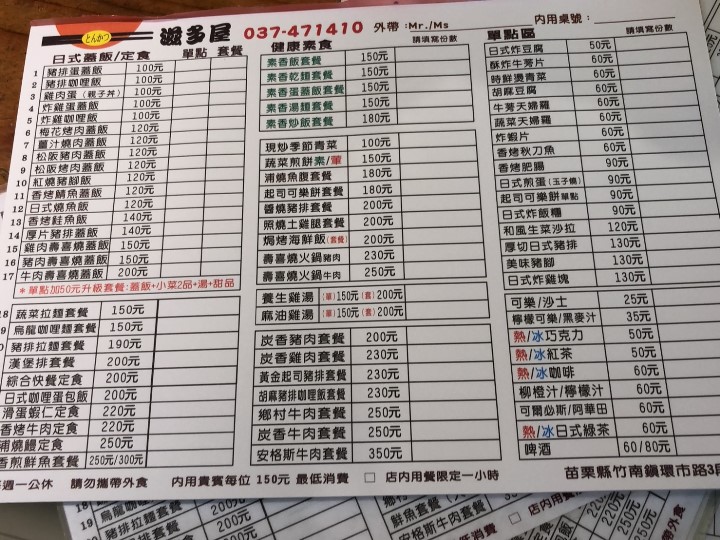 とんかつ 瀫多屋 037-471410 外帶:Mr./Ms 內用桌號:
日式蓋飯/定食 單點 套餐
1 豬排蛋蓋飯 100元
2 豬排咖哩飯 100元
3 雞肉蛋(親子丼) 100元
4 炸雞蛋蓋飯 100元
5 炸雞咖哩飯 100元
6 梅花烤肉蓋飯 120元
7 薑汁燒肉蓋飯 120元
8 松阪豬肉蓋飯 120元
9 松阪烤肉蓋飯 120元
10 紅燒豬腳飯 120元
11 香烤鯖魚蓋飯 120元
12 日式燒魚飯 120元
13 香烤鮭魚飯 140元
14 厚片豬排蓋飯 140元
15 雞肉壽喜燒蓋飯 150元
16 豬肉壽喜燒蓋飯 150元
17 牛肉壽喜燒蓋飯 200元
*單點加50元升級套餐:蓋飯+小菜2品+湯+甜品
18 蔬菜拉麵套餐 150元
19 烏龍咖哩麵套餐 150元
豬排拉麵套餐 190元
漢堡排套餐 200元
綜合快餐定食 200元
日式咖哩蛋包飯 200元
滑蛋蝦仁定食 220元
香烤牛肉定食 220元
蒲燒鰻定食 250元
香煎鮮魚套餐 250元/300元
健康素食 請填寫份數
素香飯套餐 150元
素香乾麵套餐 150元
素香蛋蓋飯套餐 150元
素香湯麵套餐 150元
素香炒飯套餐 180元
現炒季節青菜 100元
蔬菜煎餅素/葷 150元
浦燒魚腹套餐 180元
起司可樂餅套餐 180元
醬燒豬排套餐 200元
照燒土雞腿套餐 200元
焗烤海鮮飯(套餐) 200元
壽喜燒火鍋豬肉 200元
壽喜燒火鍋牛肉 250元
養生雞湯 (單)150元(套)200元
麻油雞湯 (單)150元(套)200元
炭香豬肉套餐 200元
炭香雞肉套餐 230元
黃金起司豬排套餐 230元
胡麻豬排咖哩飯套餐 230元
鄉村牛肉套餐 250元
炭香牛肉套餐 250元
安格斯牛肉套餐 350元
單點區 請填寫份數
日式炸豆腐 50元
酥炸牛蒡片 60元
時鮮燙青菜 60元
胡麻豆腐 60元
牛蒡天婦羅 60元
蔬菜天婦羅 60元
炸蝦片 60元
香烤秋刀魚 60元
香烤肥腸 90元
日式煎蛋(玉子燒) 90元
起司可樂餅單點 90元
日式炸飯糰 90元
和風生菜沙拉 120元
厚切日式豬排 130元
美味豬腳 130元
日式炸雞塊 130元
可樂/沙士 25元
檸檬可樂/黑麥汁 35元
熱/冰巧克力 50元
熱/冰紅茶 50元
熱/冰咖啡 60元
柳橙汁/檸檬汁 60元
可爾必斯/阿華田 60元
熱/冰日式綠茶 60元
啤酒 60/80元
每週一公休 請勿攜帶外食 內用貴賓每位 150元 最低消費 □ 店內用餐限定一小時 苗栗縣竹南鎮環市路3段
19 烏龍咖哩麵套餐
豬排拉麵套餐 200元
鮮魚套餐
安格斯牛肉套餐